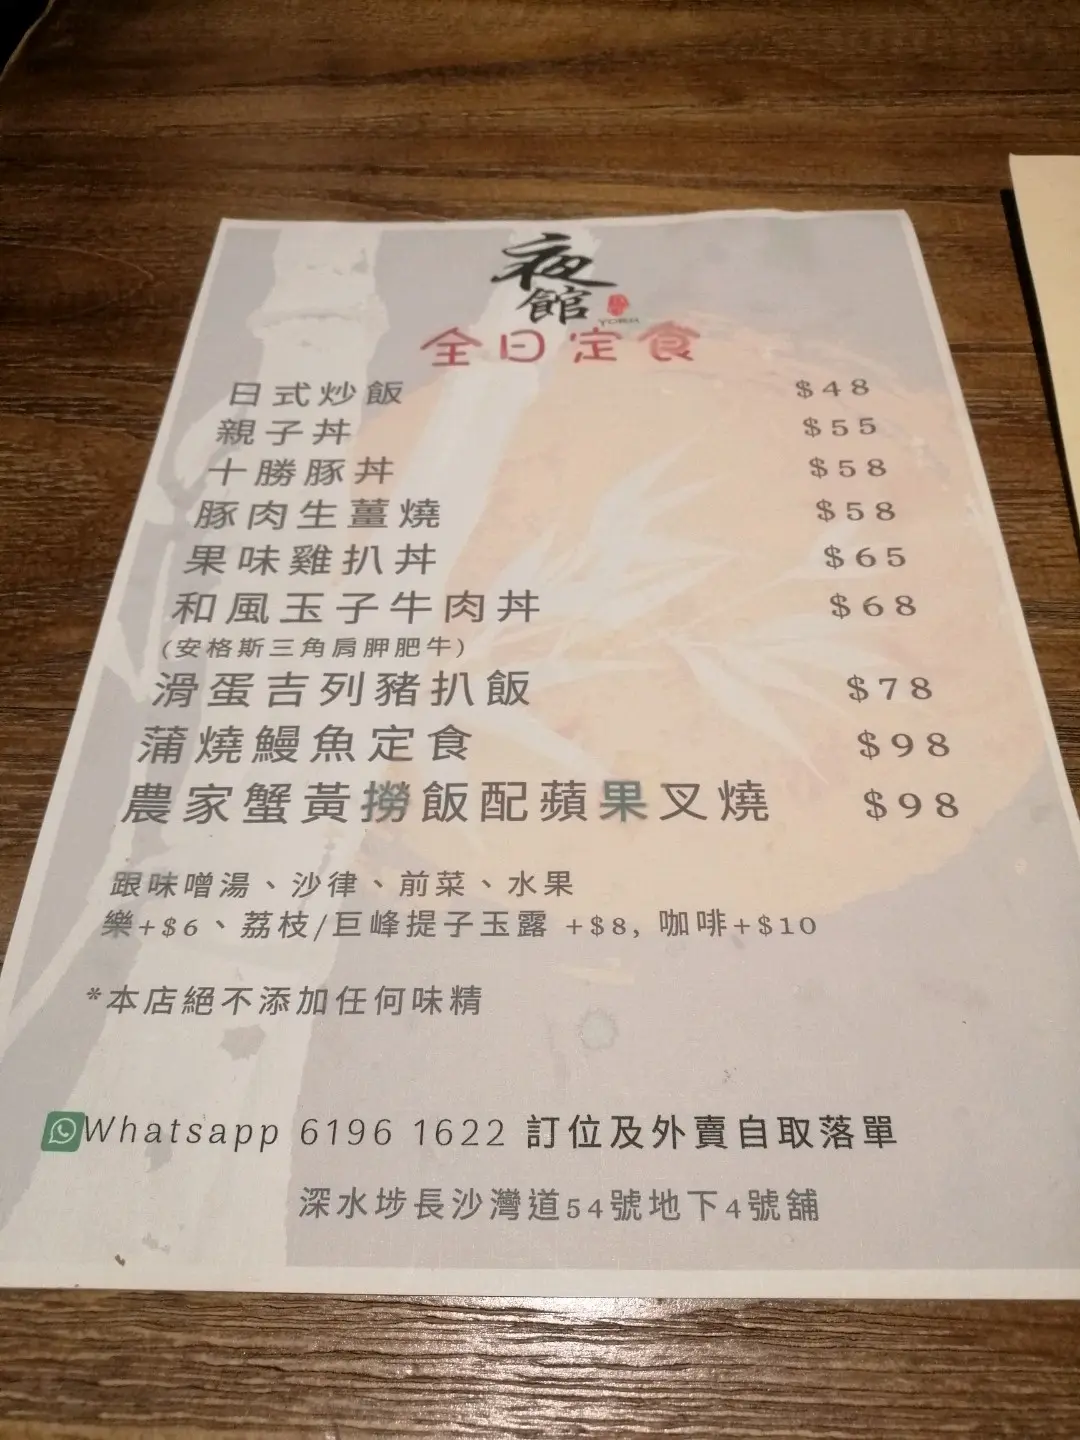 夜
館
全日定食
日式炒飯 $48
親子丼 $55
十勝豚丼 $58
豚肉生薑燒 $58
果味雞扒丼 $65
和風玉子牛肉丼 $68
(安格斯三角肩胛肥牛)
滑蛋吉列豬扒飯 $78
蒲燒鰻魚定食 $98
農家蟹黃撈飯配蘋果叉燒 $98
跟味噌湯、沙律、前菜、水果
樂+$6、荔枝/巨峰提子玉露 +$8, 咖啡+$10
*本店絕不添加任何味精
Whatsapp 6196 1622 訂位及外賣自取落單
深水埗長沙灣道54號地下4號舖